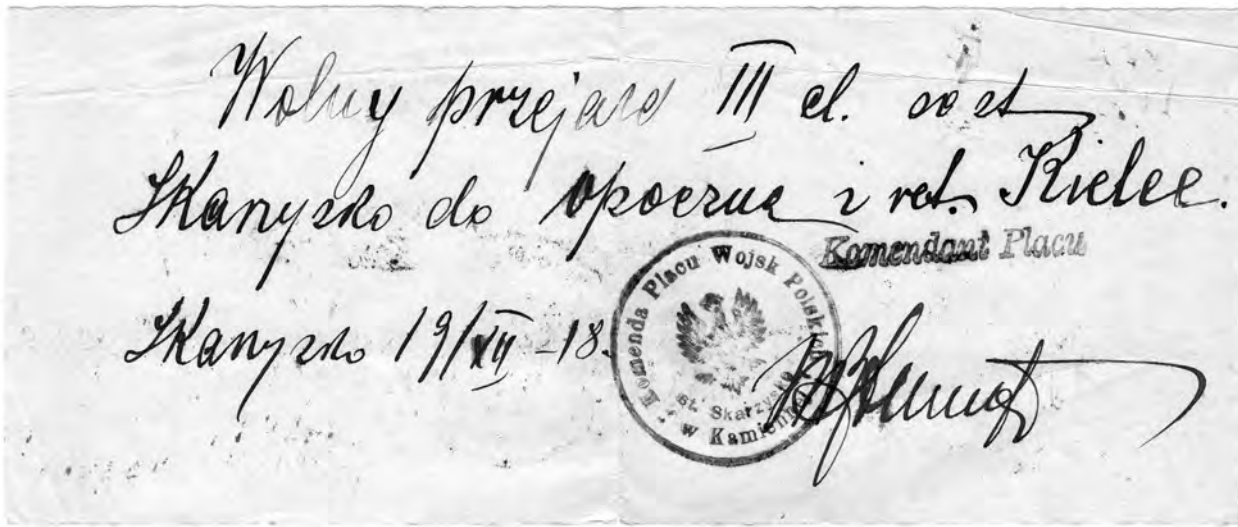 Wolny przejazd III cl. od st
Skarzysko do Opoczna i ret. Kielce.
Komendant Placu
Skarzysko 19/XII-18.
Komenda Placu Wojsk Polskich
st. Skarzysko
w Kamiennej